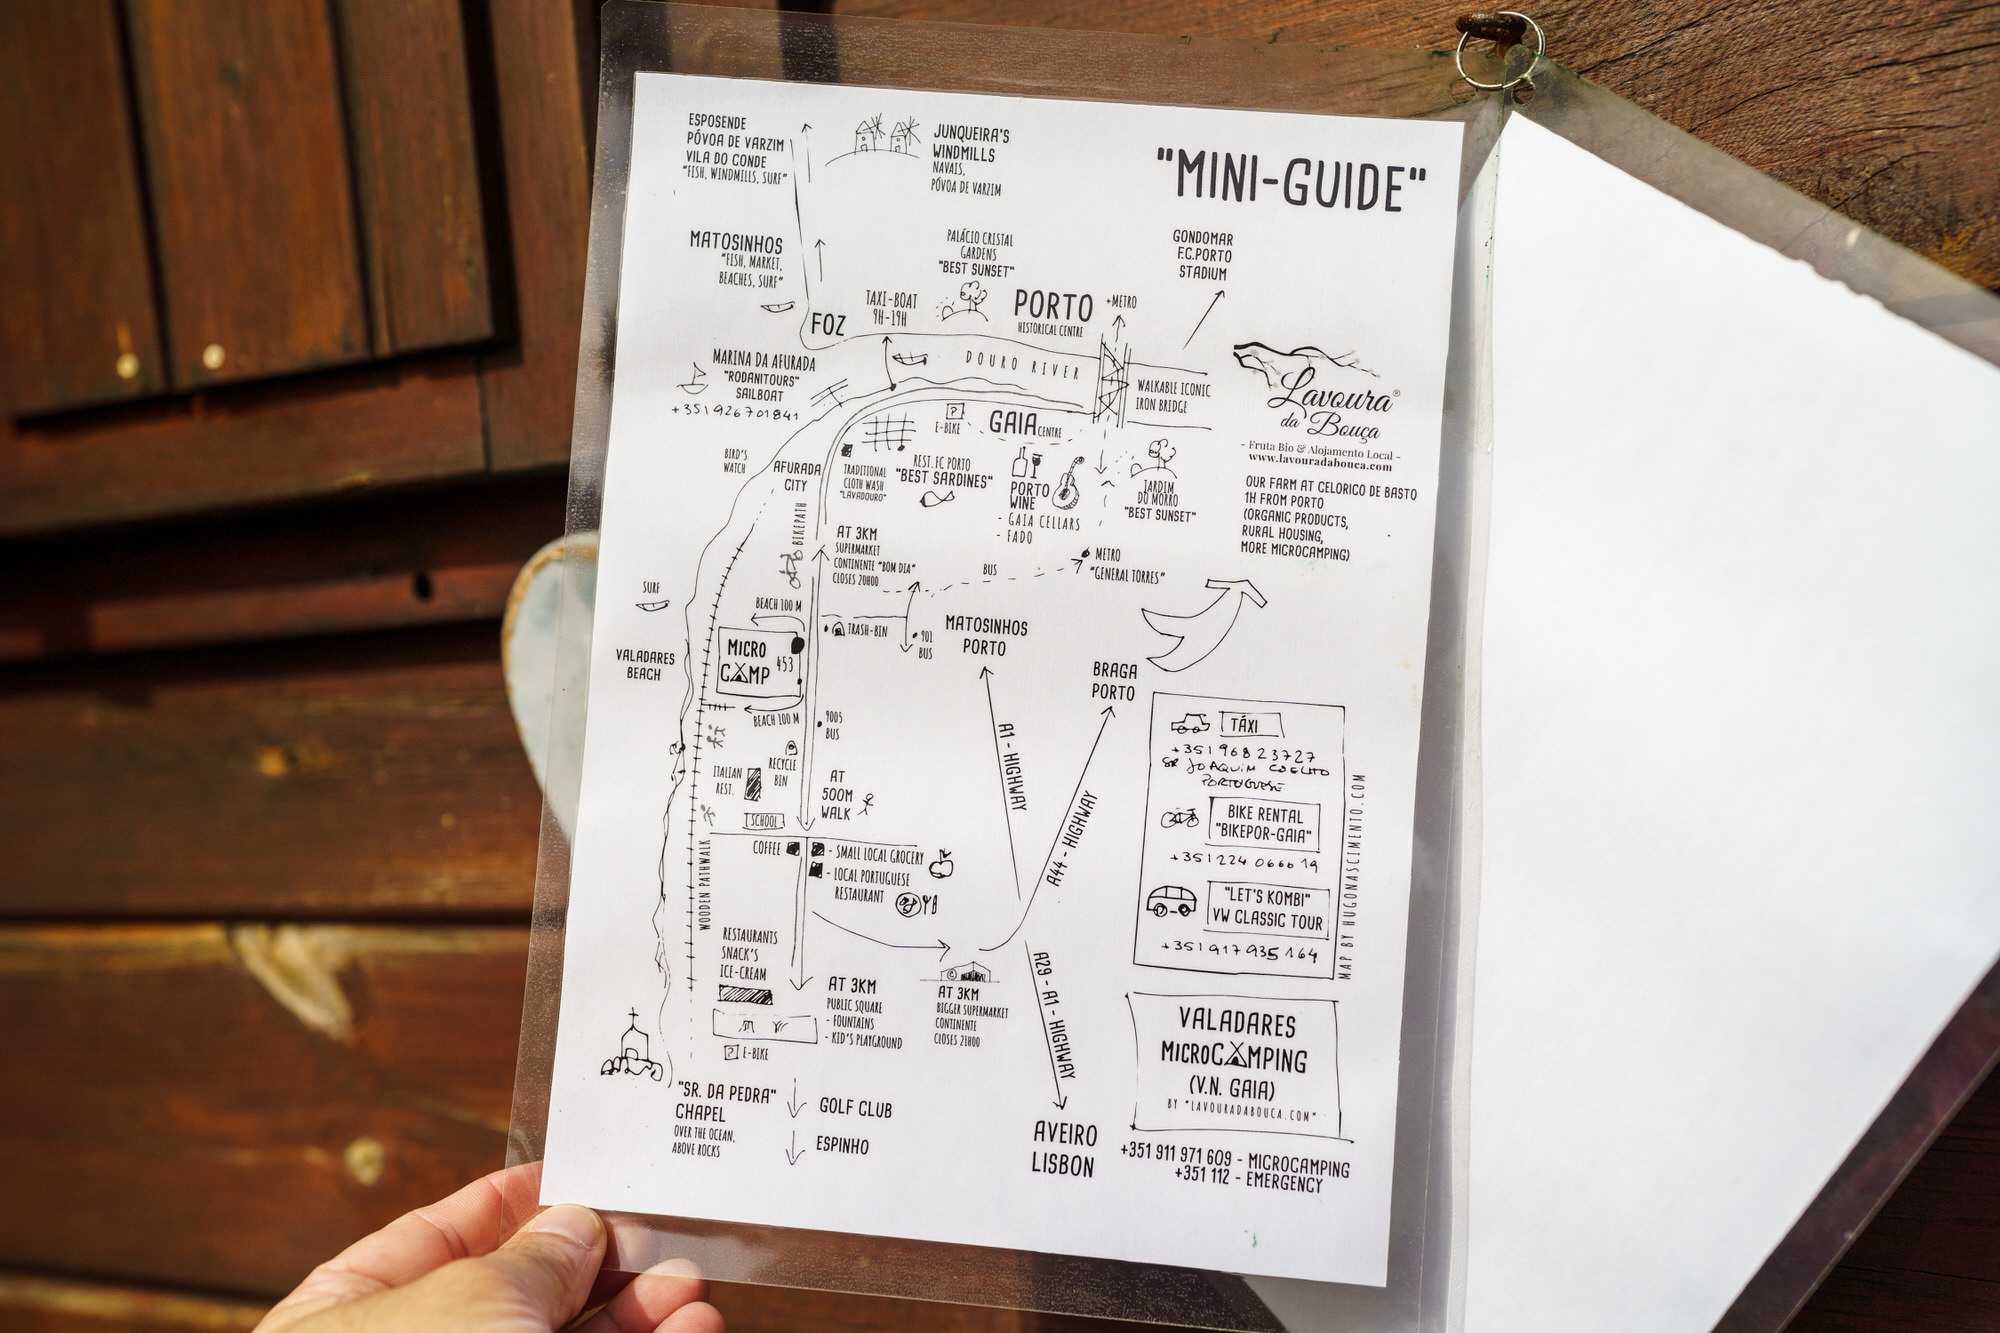 "MINI-GUIDE"
ESPOSENDE
PÓVOA DE VARZIM
VILA DO CONDE
"FISH, WINDMILLS, SURF"
JUNQUEIRA'S
WINDMILLS
NAVAIS,
PÓVOA DE VARZIM
MATOSINHOS
"FISH, MARKET,
BEACHES, SURF"
PALÁCIO CRISTAL
GARDENS
"BEST SUNSET"
GONDOMAR
F.C.PORTO
STADIUM
FOZ
TAXI-BOAT
9H-19H
PORTO
HISTORICAL CENTRE
+METRO
DOURO RIVER
WALKABLE ICONIC
IRON BRIDGE
MARINA DA AFURADA
"RODANITOURS"
SAILBOAT
+351926701841
P
E-BIKE
GAIA CENTRE
Lavoura®
da Bouça
- Fruta Bio & Alojamento Local -
www.lavouradabouca.com
OUR FARM AT CELORICO DE BASTO
1H FROM PORTO
(ORGANIC PRODUCTS,
RURAL HOUSING,
MORE MICROCAMPING)
BIRD'S
WATCH
AFURADA
CITY
TRADITIONAL
CLOTH WASH
"LAVADOURO"
REST. FC PORTO
"BEST SARDINES"
PORTO
WINE
- GAIA CELLARS
- FADO
JARDIM
DO MORRO
"BEST SUNSET"
BIKEPATH
AT 3KM
SUPERMARKET
CONTINENTE "BOM DIA"
CLOSES 20H00
BUS
METRO
"GENERAL TORRES"
SURF
BEACH 100 M
TRASH-BIN
901
BUS
MATOSINHOS
PORTO
VALADARES
BEACH
MICRO
CAMP
453
BEACH 100 M
9005
BUS
BRAGA
PORTO
A1 - HIGHWAY
A44 - HIGHWAY
ITALIAN
REST.
RECYCLE
BIN
AT
500M
WALK
SCHOOL
COFFEE
- SMALL LOCAL GROCERY
- LOCAL PORTUGUESE
RESTAURANT
WOODEN PATHWALK
TÁXI
+351 968 23727
SR JOAQUIM COELHO
PORTUGUESE
BIKE RENTAL
"BIKEPOR-GAIA"
+351 224 066619
"LET'S KOMBI"
VW CLASSIC TOUR
+351 917 935 164
MAP BY HUGONASCIMENTO.COM
RESTAURANTS
SNACK'S
ICE-CREAM
AT 3KM
PUBLIC SQUARE
- FOUNTAINS
- KID'S PLAYGROUND
P E-BIKE
C
AT 3KM
BIGGER SUPERMARKET
CONTINENTE
CLOSES 21H00
A29 - A1 - HIGHWAY
"SR. DA PEDRA"
CHAPEL
OVER THE OCEAN,
ABOVE ROCKS
GOLF CLUB
ESPINHO
AVEIRO
LISBON
VALADARES
MICROCAMPING
(V.N. GAIA)
BY "LAVOURADABOUCA.COM"
+351 911 971 609 - MICROCAMPING
+351 112 - EMERGENCY